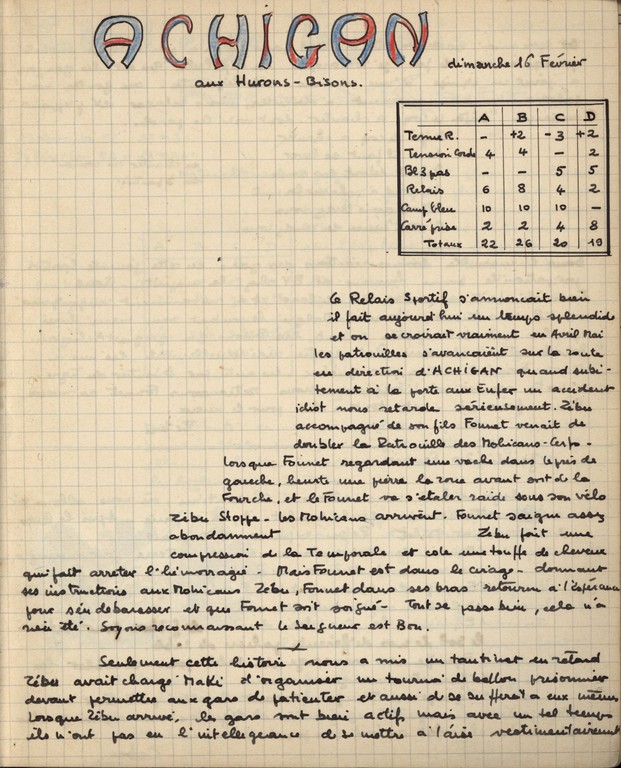 ACHIGAN
dimanche 16 Février
aux Hurons-Bisons.
A B C D
Tenue R. - +2 -3 +2
Tension Corde 4 4 - 2
Bl 3 pas - - 5 5
Relais 6 8 4 2
Camp bleu 10 10 10 -
Carré prise 2 2 4 8
Totaux 22 26 20 19
Le Relais Sportif s'annoncait bien
il fait aujourd'hui un temps splendide
et on se croirait vraiment en Avril Mai
les patrouilles s'avancaient sur la route
en direction d'ACHIGAN quand subi-
tement à la porte aux Enfer un accident
idiot nous retarde sérieusement. Zébu
accompagné de son fils Founet venait de
doubler la Patrouille des Mohicans-Cerfs-
lorsque Founet regardant une vache dans le près de
gaueche, heurte une pierre la roue avant sort de la
Fourche, et le Founet va s'étaler raide sous son vélo
Zébu Stoppe - les Mohicans arrivent. Founet saigne assez
abondamment Zébu fait une
compression de la Temporale et cole une touffe de cheveux
qui fait arreter l'hémorragie - Mais Founet est dans le cirage - donnant
ses instructions aux Mohicans Zébu, Founet dans ses bras retourne à l'Espérance
pour s'en débarasser et que Founet soit soigné - Tout se passe bien, cela n'a
rien été. Soyons reconnaissant le Seigneur est Bon.
Seulement cette histoire nous a mis un tantinet en retard
Zébu avait chargé Maki d'organiser un tournoi de ballon prisonnier
devant permettre aux gars de patienter et aussi de se suffire à eux mêmes
Lorsque Zébu arrive, les gars sont bien actifs mais avec un tel temps
ils n'ont pas eu l'intellegeance de se mettre à l'aise vestimentairement